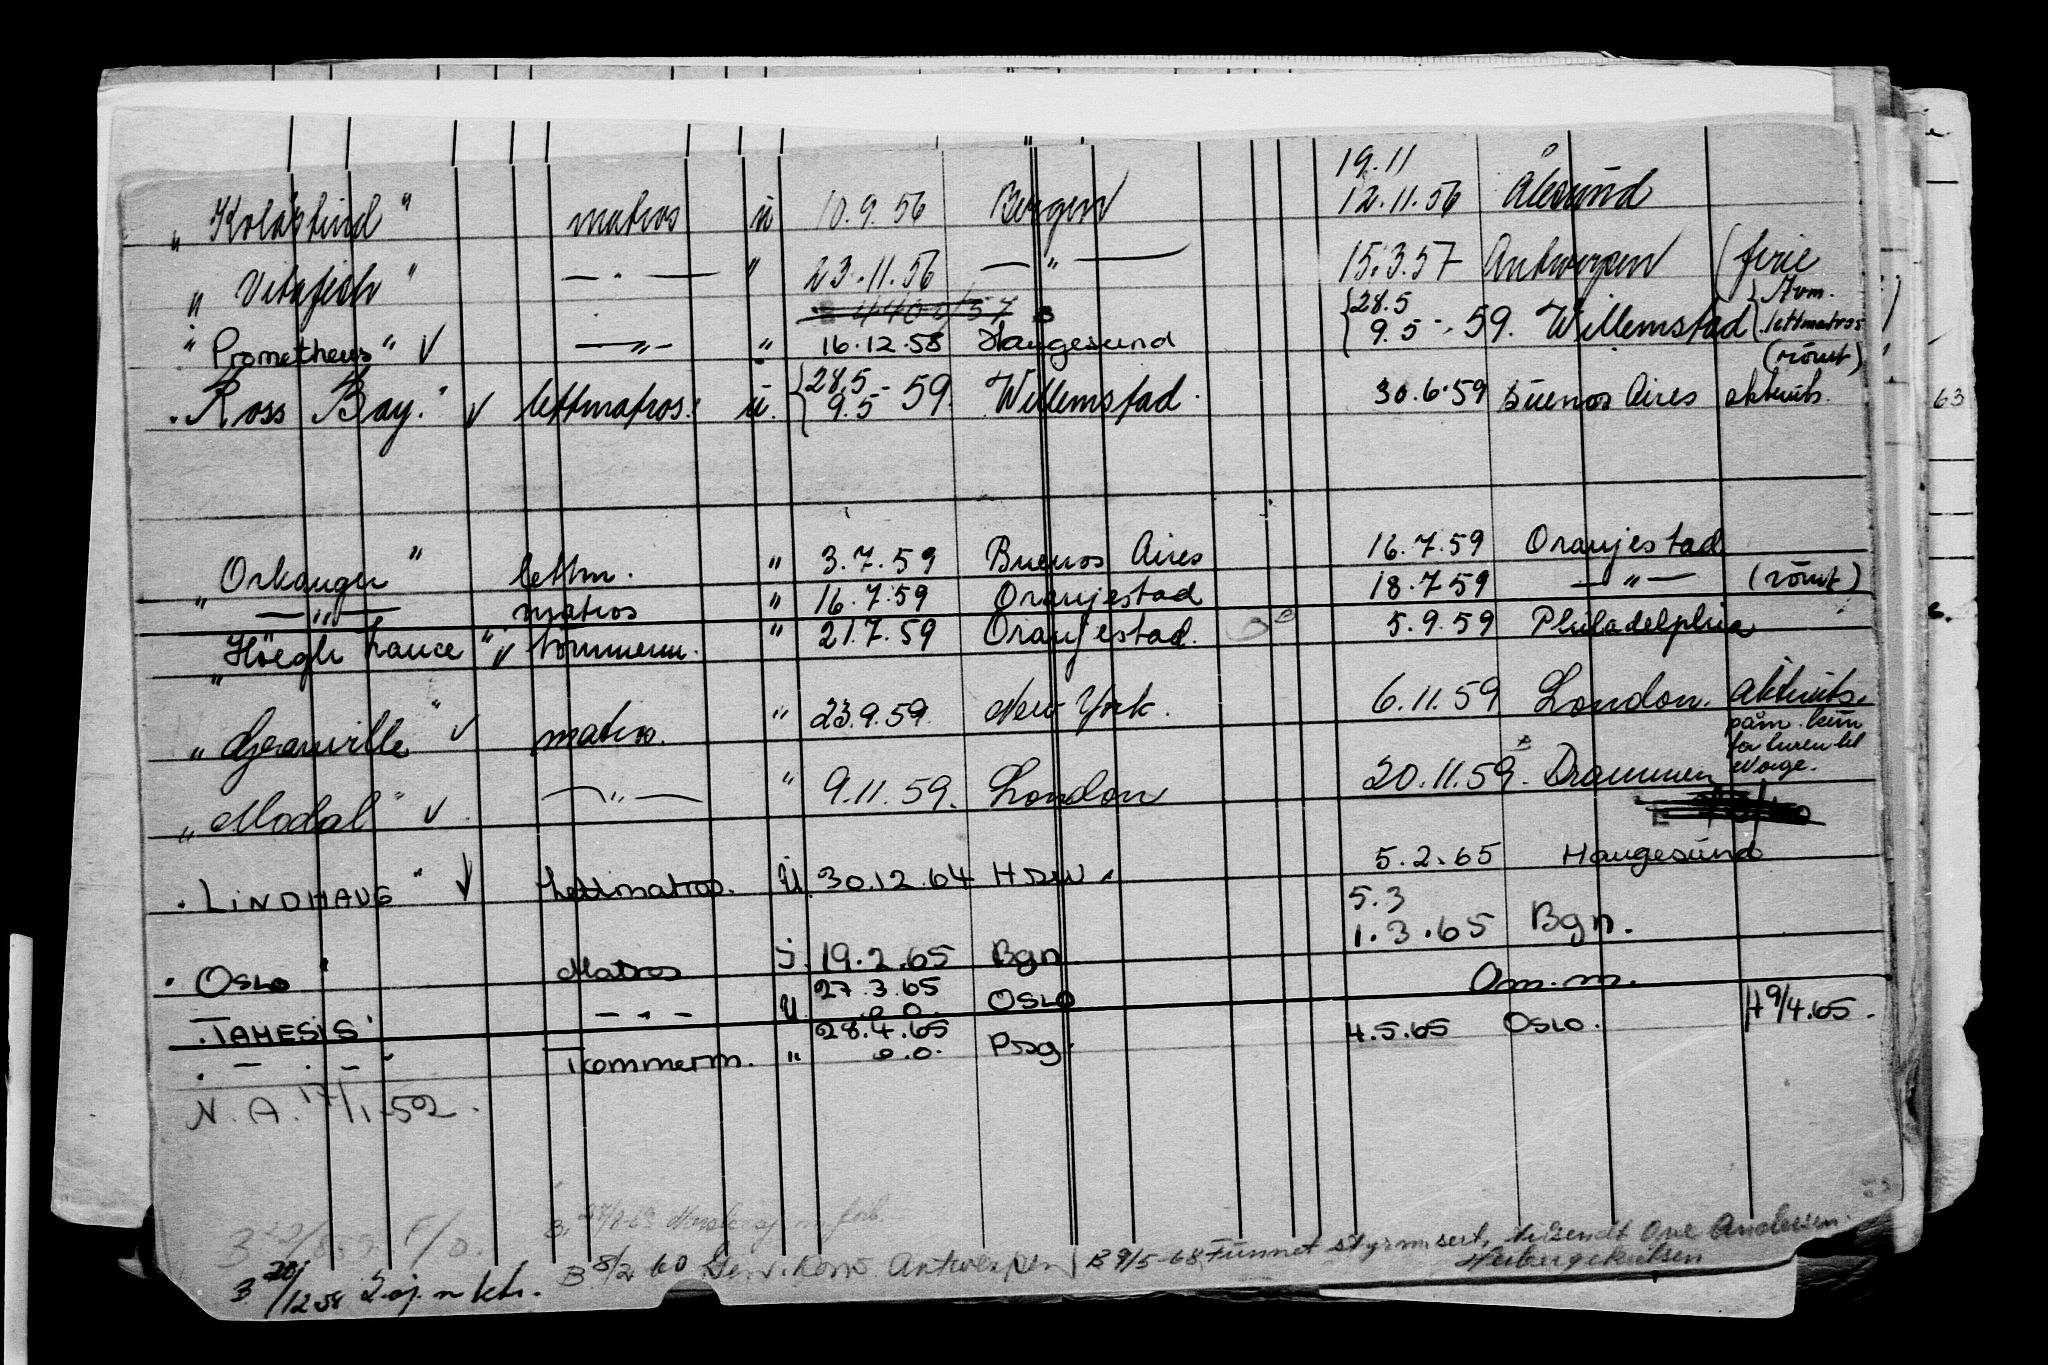 19.11
„ Kolástind " matros ü 10.9.56 Bergen 12.11.56 Ålesünd
„ Vitafish " — " — " 23.11.56 — " — 15.3.57 Antwerpen (ferie
" Prometheus " √ — " — " 16.12.58 Haugesund {28.5 9.5 - 59. Willemstad {Avm. lettmatros (römt)
" Ross Bay. " √ lettmatros. ü. {28.5 9.5 - 59. Willemstad. 30.6.59 Buenos Aires
„ Orkanger " lettm. " 3.7.59 Buenos Aires 16.7.59 Oranjestad
— " — matros " 16.7.59 Oranjestad 18.7.59 — " — (römt)
„ Höegh Lance " √ tömmerm. " 21.7.59 Oranjestad. 5.9.59 Philadelphia
„ Granville " √ matros. " 23.9.59. New York. 6.11.59 London.
påm. kün
for turen til
Norge.
„ Modal " √ — " — " 9.11.59. London 20.11.59. Drammen
" LINDHAUG " √ Lettmatros. Ü 30.12.64 5.2.65 Haugesünd
5.3
" OSLO " Matros i. 19.2.65 Bgn 1.3.65 Bgn.
" TAMESIS " — " — Ü 27.3.65 o.o. OSLO Om.m.
" — " — " Tömmerm. " 28.4.65 o.o. Prsg. 4.5.65 OSLO. H 9/4.65.
N. A. 17/1-502.
B 8/2 60 Gen.kons. Antwerpen B 9/5-68 Funnet styrm.sert, tilsendt Ove Andersen
B 20/12 58 S.sj.m.ktr.
63